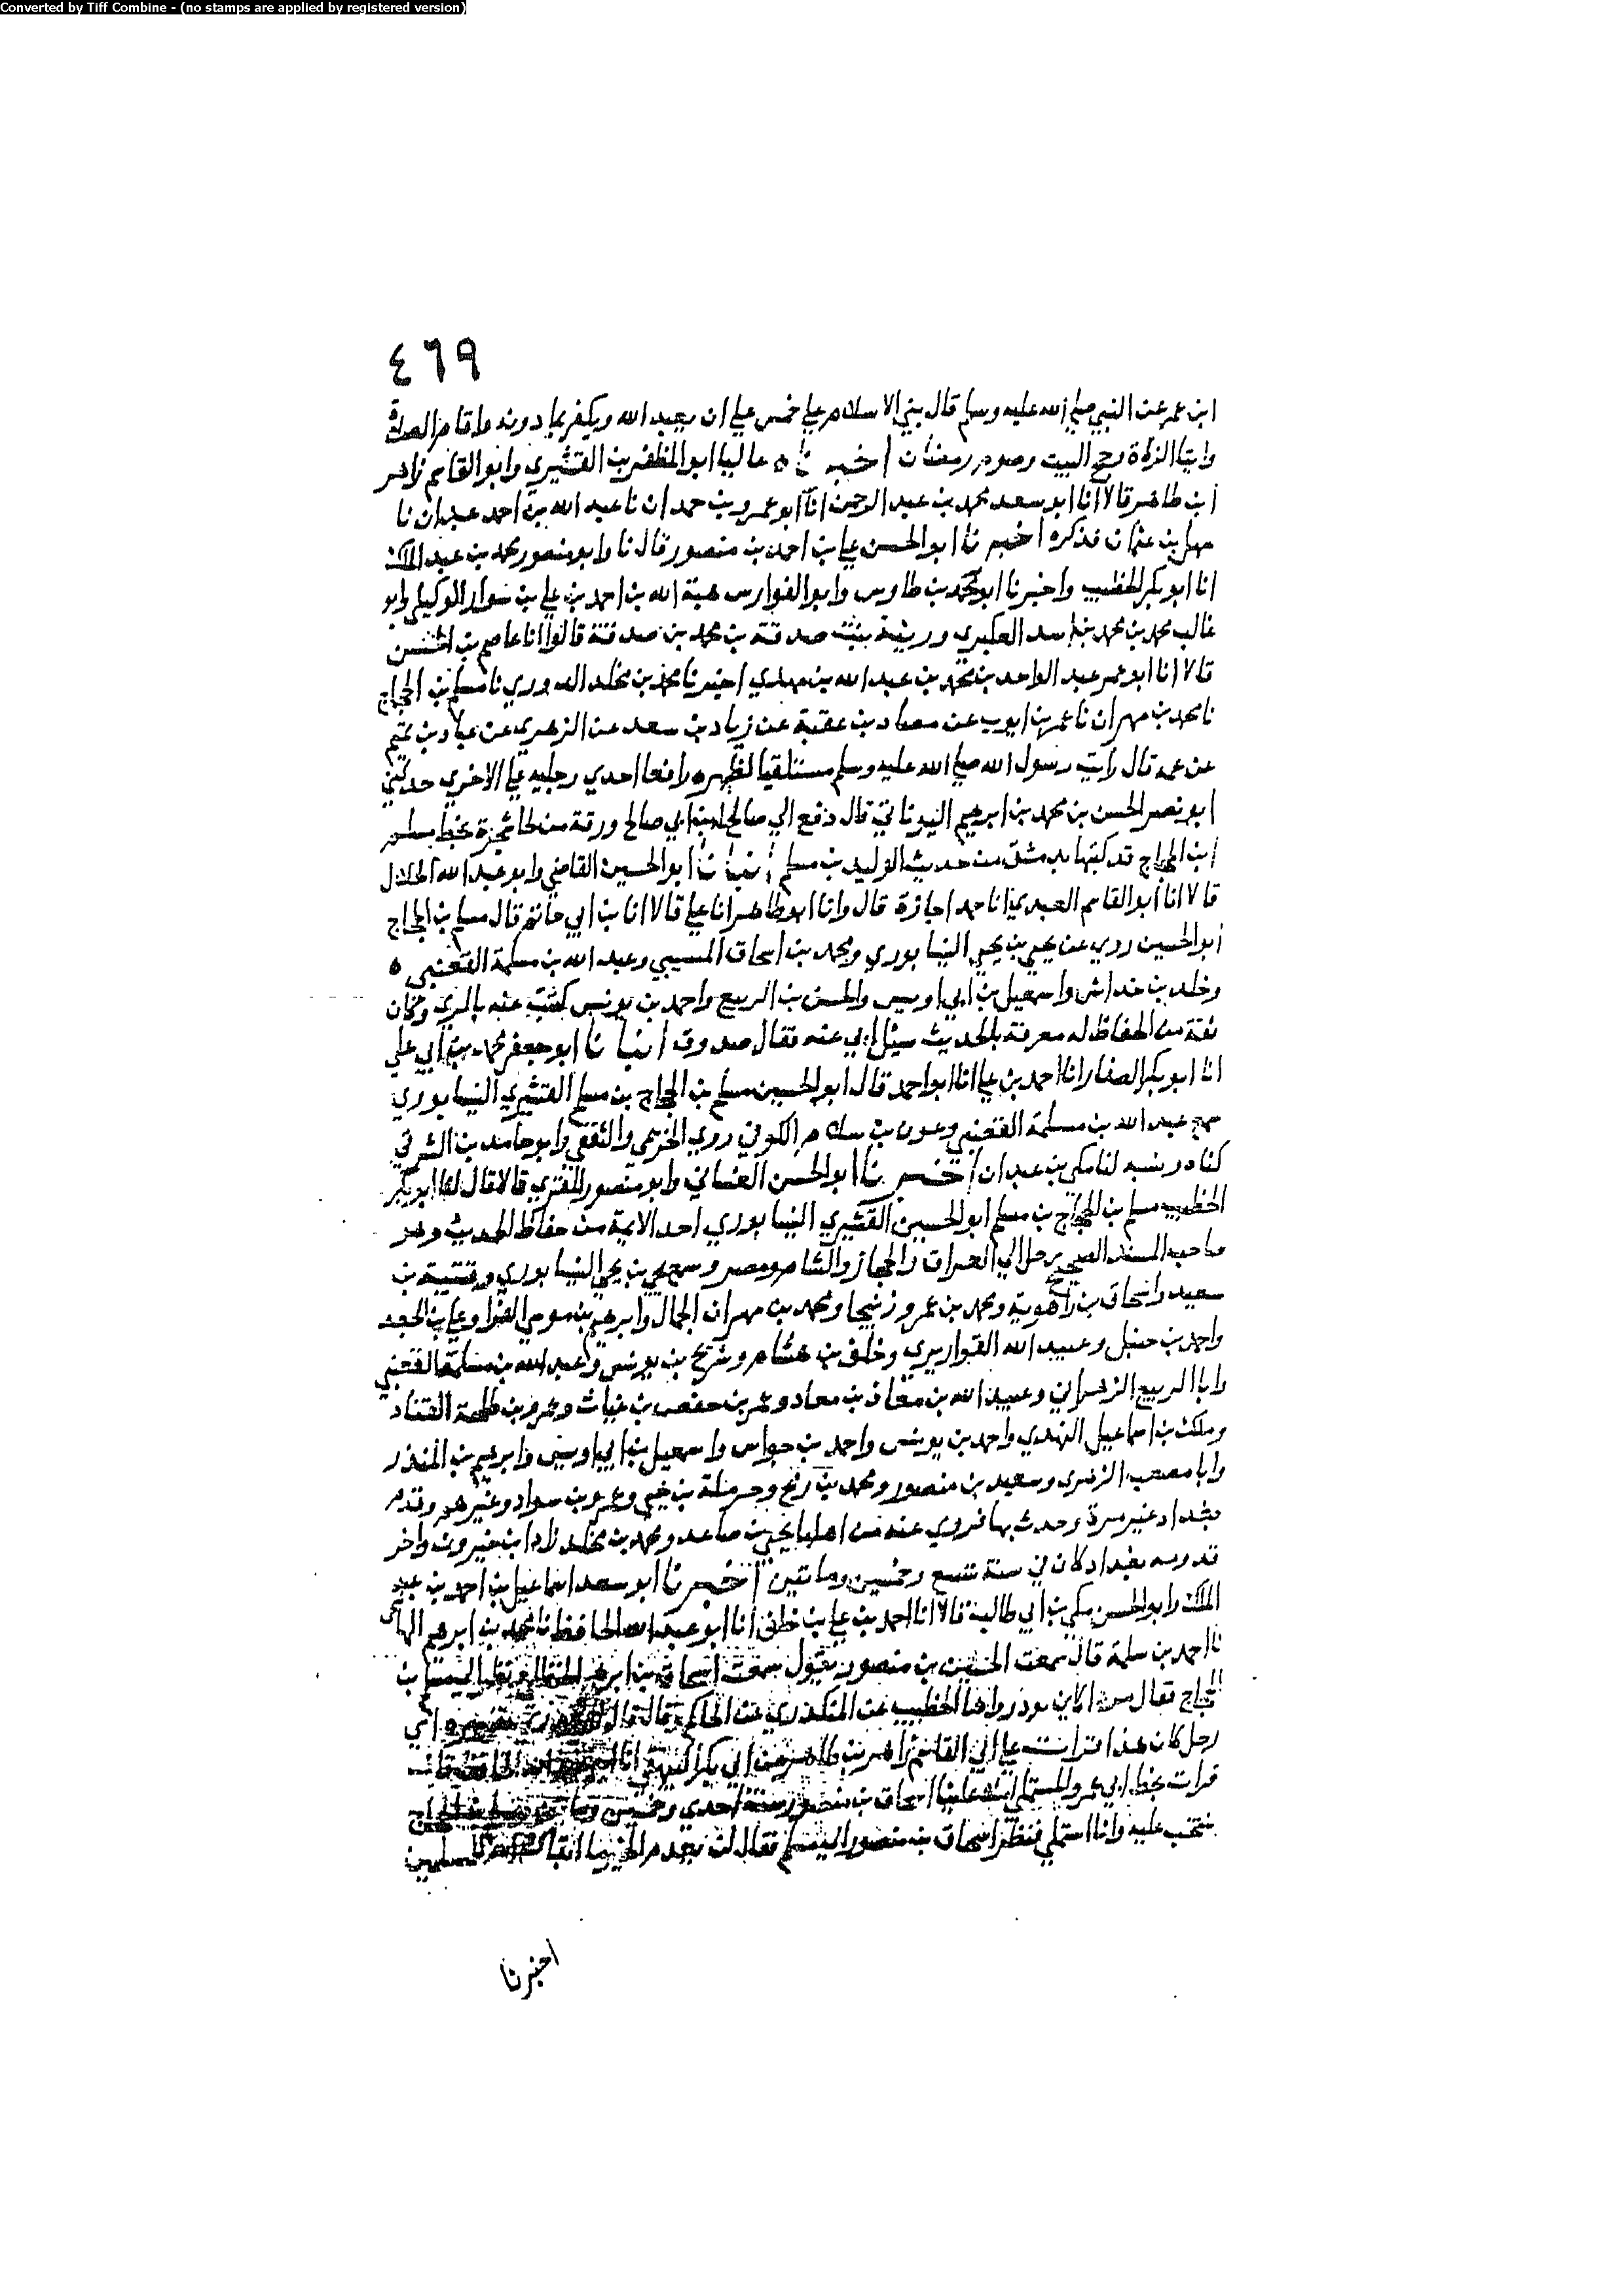 Converted by Tiff Combine - (no stamps are applied by registered version)
٤٦٩
ابن عمر عن النبي صلى الله عليه وسلم قال بني الاسلام علي خمس علي ان يعبد الله ويكفر بما دونه واقام الصلاة
وايتا الزكاة وحج البيت وصوم رمضان اخبرناه عاليا ابو المظفر بن القشيري وابو القاسم زاهر
ابن طاهر قالا انا ابو سعد محمد بن عبد الرحمن انا ابو عمرو بن حمدان نا عبد الله بن احمد عبدان نا
سهل بن عثمان فذكره اخبرنا ابو الحسن علي بن احمد بن منصور قال نا وابو منصور محمد بن عبد الملك
انا ابو بكر الخطيب واخبرنا ابو محمد بن طاوس وابو الفوارس هبة الله بن احمد بن علي بن سوار الوكيل وابو
غالب محمد بن محمد بن اسد العكبري وربيئة بنت صدقة بن محمد بن صدقة قالوا انا عاصم بن الحسن
قالا انا ابو عمر عبد الواحد بن محمد بن عبد الله بن مهدي اخبرنا محمد بن مخلد الدوري نا مسلم بن الحجاج
نا محمد بن مهران نا عمر بن ايوب عن مصاد بن عقبة عن زياد بن سعد عن الزهري عن عباد بن تميم
عن عمه قال رايت رسول الله صلي الله عليه وسلم مستلقيا لظهره رافعا احدي رجليه علي الاخري حدثني
ابو نصر الحسن بن محمد بن ابرهيم اليوناتي قال دفع الي صالح ابن ابي صالح ورقة من لحا شجرة بخط مسلم
ابن الحجاج قد كتبها بدمشق من حديث الوليد بن مسلم انبانا ابو الحسين القاضي وابو عبد الله الخلال
قالا انا ابو القاسم العبدي انا حمد اجازة قال وانا ابو طاهر انا علي قالا انا بن ابي حاتم قال مسلم بن الحجاج
ابو الحسين روي عن يحيى بن يحيى النيسابوري ومحمد بن اسحاق المسيبي وعبد الله بن مسلمة القعنبي ه
وخلد بن خداش واسمعيل بن ابي اويس والحسن بن الربيع واحمد بن يونس كتبت عنه بالري وكان
ثقة من الحفاظ له معرفة بالحديث سيل ابي عنه فقال صدوق انبانا ابو جعفر محمد بن ابي علي
انا ابو بكر الصفار انا احمد بن علي انا ابو احمد قال ابو الحسين مسلم بن الحجاج بن مسلم القشيري النيسابوري
سمع عبد الله بن مسلمة القعنبي وعون بن سلام الكوفي روي الخزيمي والثقفي وابو حامد بن الشرقي
كناه ونسبه لنا مكي بن عبدان اخبرنا ابو الحسن الغساني وابو منصور المقري قالا قال لنا ابو بكر
الخطيب مسلم بن الحجاج بن مسلم ابو الحسين القشيري النيسابوري احد الايمة من حفاظ الحديث وهو
صاحب المسند الصحيح رحل الي العراق والحجاز والشام ومصر وسمع يحيى بن يحيى النيسابوري وقتيبة بن
سعيد واسحاق بن راهوية ومحمد بن عمرو زنيجا ومحمد بن مهران الجمال وابرهيم بن موسي الفرا وعلي بن الجعد
واحمد بن حنبل وعبيد الله القواريري وخلف بن هشام وشريح بن يونس وعبد الله بن مسلمة القعنبي
وابا الربيع الزهراني وعبيد الله بن معاذ بن معاد وعمر بن حفص بن غياث وعمرو بن طلحة القناد
وملك بن اسماعيل النهدي واحمد بن يونس واحمد بن جواس واسمعيل بن ابي اويس وابرهيم بن المنذر
وابا مصعب الزهري وسعيد بن منصور ومحمد بن رمح وحرملة بن يحيى وعمرو بن سواد وغيرهم وقدم
بغداد غير مرة وحدث بها فروي عنه من اهلها يحيى بن صاعد ومحمد بن مخلد زاد ابن خيرون واخر
قدومه بغداد كان في سنة تسع وخمسين وماتين اخبرنا ابو سعد اسماعيل بن احمد بن عبد
الملك وابو الحسن مكي بن ابي طالب قالا انا احمد بن علي بن خلف انا ابو عبد الله الحافظ نا محمد بن ابرهيم الهاشمي
نا احمد بن سلمة قال سمعت الحسين بن منصور يقول سمعت اسحاق بن ابرهيم الحنظلي ونظر الي مسلم بن
الحجاج فقال مردا كاين بود رواها الخطيب عن المنكدري عن الحاكم قال قال اي
رجل كان هذا قرات علي ابي القاسم زاهر بن طاهر عن ابي بكر البيهقي انا
قرات بخط ابي عمرو المستملي املا علينا اسحاق بن منصور سنة احدي وخمسين ومسلم بن الحجاج
ينتخب عليه وانا استملي فنظر اسحاق بن منصور الي مسلم فقال لن نعدم الخير ما ابقاك الله للمسلمين
اخبرنا